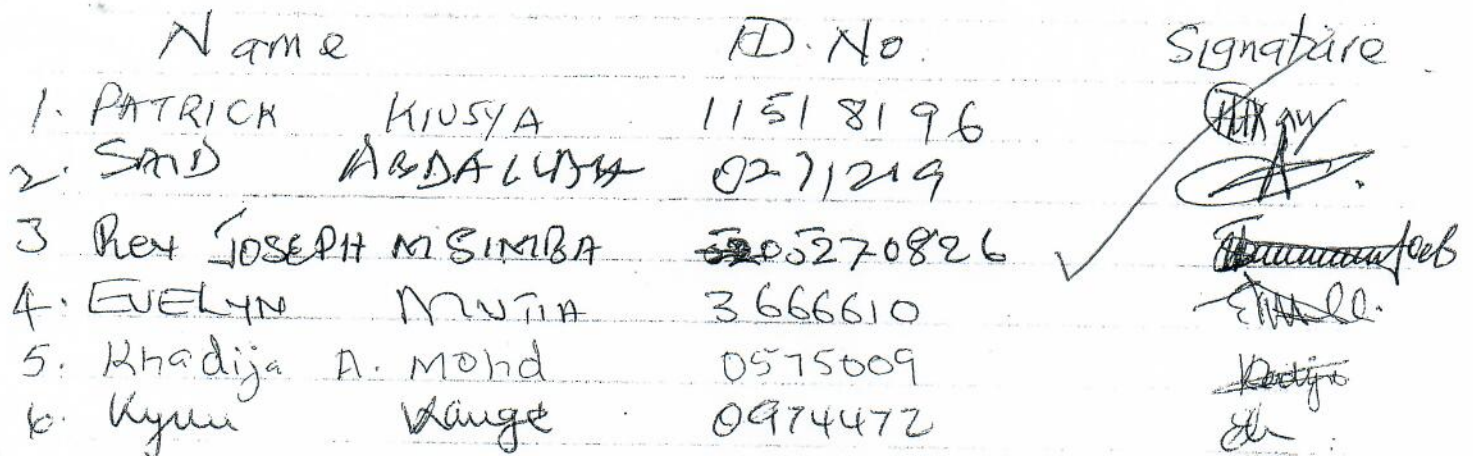 Name ID. No. Signature
1. PATRICK KIUSYA 11518196
2. SAID ABDALLAH 0271219
3 Rev JOSEPH MSIMBA 05270826
4. EVELYN MUTIA 3666610
5. Khadija A. Mohd 0575009 Kadija
6. Kyuu Kauge 0974472